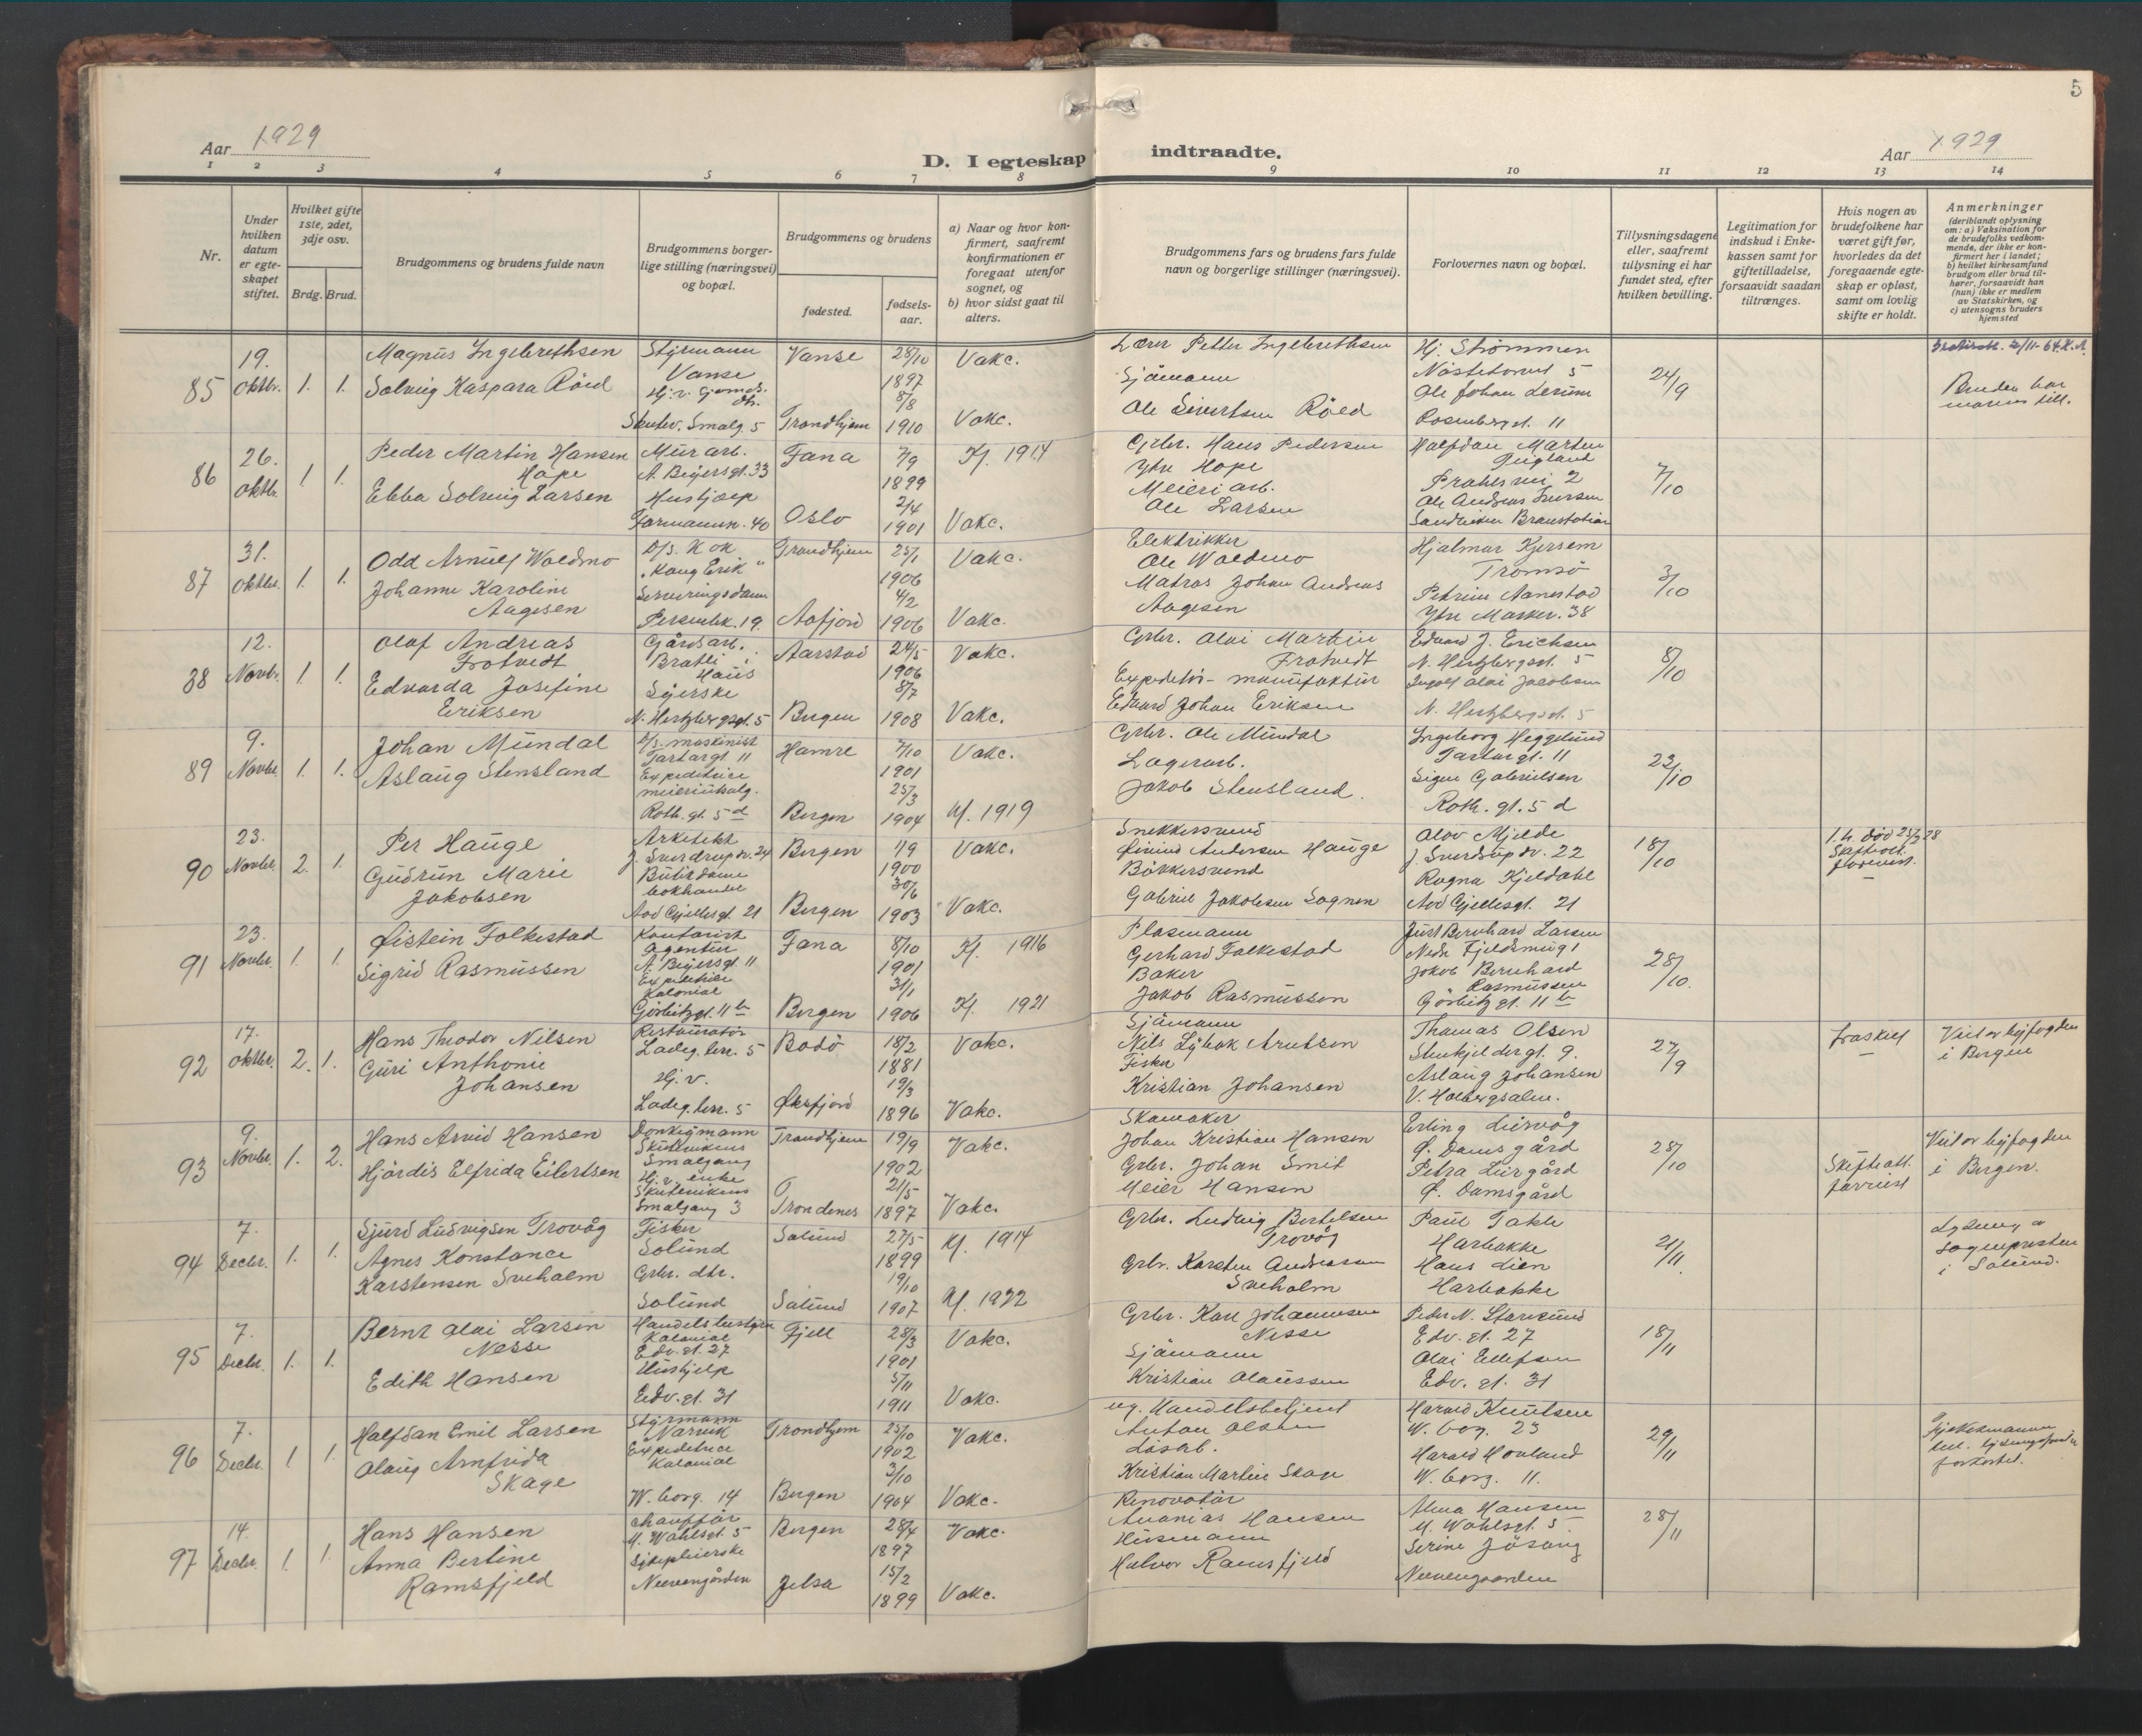 5
Aar 1929
D. I egteskap indtraadte.
Aar 1929
1 2 3 4 5 6 7 8 9 10 11 12 13 14
Nr.
Under hvilken datum er egteskapet stiftet.
Hvilket gifte 1ste, 2det, 3dje osv.
Brdg. Brud.
Brudgommens og brudens fulde navn
Brudgommens borgerlige stilling (næringsvei) og bopæl.
Brudgommens og brudens
fødested.
fødselsaar.
a) Naar og hvor konfirmert, saafremt konfirmationen er foregaat utenfor sognet, og
b) hvor sidst gaat til alters.
Brudgommens fars og brudens fars fulde navn og borgerlige stillinger (næringsvei).
Forlovernes navn og bopæl.
Tillysningsdagene eller, saafremt tillysning ei har fundet sted, efter hvilken bevilling.
Legitimation for indskud i Enkekassen samt for giftetilladelse, forsaavidt saadan tiltrænges.
Hvis nogen av brudefolkene har været gift før, hvorledes da det foregaaende egteskap er opløst, samt om lovlig skifte er holdt.
Anmerkninger
(deriblandt oplysning om: a) Vaksination for de brudefolks vedkommende, der ikke er konfirmert her i landet;
b) hvilket kirkesamfund brudgom eller brud tilhører, forsaavidt han (hun) ikke er medlem av Statskirken, og
c) utensogns bruders hjemsted
85 19. Oktbr. 1. 1.
Magnus Ingebrethsen
Solveig Kaspara Röed
Styrmann
Vanse
Skutev. Smalg. 5
Vanse 28/10 1897 Vakc.
Trondhjem 8/8 1910 Vakc.
Lærer Petter Ingebrethsen
Sjömann
Ole Sivertsen Röed
Hj. Strömmen
Nöstetorvet 5
Ole Johan Lerum
Rosenbergsgt. 11
24/9
Bruden har
86 26. Oktbr. 1. 1.
Peder Martin Hansen
Hope
Ebba Solveig Larsen
Murarb.
A. Beyersgt. 33
Hushjælp
Formannsv. 40
Fana 7/9 1899 Kf. 1914
Oslo 2/4 1901 Vakc.
Grbr. Hans Pedersen
Ytre Hope
Meieriarb.
Ole Larsen
Halfdan Martin
Prahlsvei 2
Ole Andreas Iversen
Sandviken Branstation
7/10
87 31. Oktbr. 1. 1.
Odd Arnulf Woldmo
Johanne Karoline
Aagesen
D/s. Kok
"Kong Erik"
Serveringsdame
Trondhjem 25/1 1906 Vakc.
Aafjord 4/2 1906 Vakc.
Elektrikker
Ole Woldmo
Matros Johan Andreas
Aagesen
Hjalmar Kjersem
Tromsö
Ytre Marker. 38
3/10
88 12. Novbr. 1. 1.
Olaf Andreas
Frotvedt
Edvarda Josefine
Eriksen
Gårdsarb.
Bratli i
Haus
Syerske
N. Hertzbergsgt. 5
Aarstad 24/5 1906 Vakc.
Bergen 8/7 1908 Vakc.
Grbr. Olai Martin
Frotvedt
Expeditör - manufaktur
Edvard Johan Eriksen
Edvard J. Erichsen
N. Hertzbergsgt. 5
Ingolf Olai Jacobsen
N. Hertzbergsgt. 5
8/10
89 9. Novbr. 1. 1.
Johan Mundal
Aslaug Stensland
D/s. maskinist
Tartargt. 11
Expeditrice
meieriutsalg.
Roth. gt. 5 d
Hamre 7/10 1901 Vakc.
Bergen 25/3 1904 Kf. 1919
Grbr. Ole Mundal
Lagerarb.
Jakob Stensland.
Ingeborg Heggelund
Tartargt. 11
Signe Gabrielsen
Roth. gt. 5 d
23/10
90 23. Novbr. 2. 1.
Per Hauge
Gudrun Marie
Jakobsen
Arkitekt
J. Sverdrupsv. 24
Butikdame
bokhandel
Aad Gjellesgt. 21
Bergen 1/9 1900 Vakc.
Bergen 30/6 1903 Vakc.
Snekkersvend
Eivind Andersen Hauge
Bökkersvend
Gabriel Jakobsen Sognen
Olav Mjelde
J. Sverdrupsv. 22
Ragna Kjeldahl
Aad Gjellesgt. 21
18/10
Skifteatt.
forevist.
91 23. Novbr. 1. 1.
Øistein Folkestad
Sigrid Rasmussen
Kontorist
Agentur
A. Beyersgt. 11
Kolonial
Görbitzgt. 11 b
Fana 8/10 1901 Kf. 1916
Bergen 31/1 1906 Kf. 1921
Gerhard Folkestad
Baker
Jakob Rasmussen
Just Bernhard Larsen
Jakob Bernhard
Rasmussen
Görbitzgt. 11 b
28/10.
92 17. Oktbr. 2. 1.
Hans Theodor Nilsen
Guri Anthonie
Johansen
Restauratör
Ladeg. terr. 5
Hj. v.
Ladeg. terr. 5
Bodö 18/2 1881 Vakc.
Øksfjord 19/3 1896 Vakc.
Nils Lybæk Arntsen
Fisker
Kristian Johansen
Thomas Olsen
Stenkjeldergt. 9.
Aslaug Johansen
V. Holbergsalm.
27/9
fraskilt
Viet av byfogden
i Bergen
93 9. Novbr. 1. 2.
Hans Arvid Hansen
Hjördis Elfrida Eilertsen
Donkeymann
Skutevikens
Smalgang
Hj. v. enke
Skutevikens
Smalgang 3
Trondhjem 19/9 1902 Vakc.
Trondenes 21/5 1897 Vakc.
Skomaker
Johan Kristian Hansen
Grbr. Johan Smit
Meier Hansen
Erling Lurvåg
Ø. Damsgård
Petra Lurgård
Ø. Damsgård
28/10
Skifteatt.
forevist
Viet av byfogden
i Bergen.
94 7. Decbr. 1. 1.
Sjurd Ludvigsen Trovåg
Agnes Konstance
Karstensen Sveholm
Fisker
Solund
Grbr. dtr.
Solund
Solund 27/5 1899 Kf. 1914
Solund 19/10 1907 Kf. 1922
Grbr. Ludvig Bertelsen
Trovåg
Grbr. Karsten Andreassen
Sveholm
Paul Takle
Harbakke
Hans Lien
Harbakke
21/11
Lysning av
sognepresten
i Solund.
95 7. Decbr. 1. 1.
Bernt Olai Larsen
Nesse
Edith Hansen
Handelsbestyrer
Kolonial
Edv. gt. 27
Hushjelp
Edv. gt. 31
Fjell 28/3 1901 Vakc.
5/11 1911 Vakc.
Grbr. Karl Johannesen
Nesse
Sjömann
Kristian Olaussen
Peder N. Storesund
Edv. gt. 27
Olai Ellefsen
Edv. gt. 31
18/11
96 7. Decbr. 1 1.
Halfdan Emil Larsen
Olaug Arnfrida
Skage
Styrmann
Narvik
Expeditrice
Kolonial
W. borg. 14
Trondhjem 25/10 1902 Vakc.
Bergen 3/10 1904 Vakc.
ug. Handelsbetjent
Anton Olsen
Lösarb.
Kristian Martin Skage
Harald Knutsen
W. borg. 23
Harald Hovland
W. borg. 11.
29/11
97 14. Decbr. 1. 1.
Hans Hansen
Anna Bertine
Ramsfjeld
Chaufför
M. Wahlsgt. 5
Sykepleierske
Neevengården
Bergen 28/4 1897 Vakc.
Jelsa 15/2 1899 Vakc.
Renovatör
Ananias Hansen
Husmann
Halvor Ramsfjeld
Alma Hansen
M. Wahlsgt. 5.
Serine Jösang
Neevengaarden
28/11